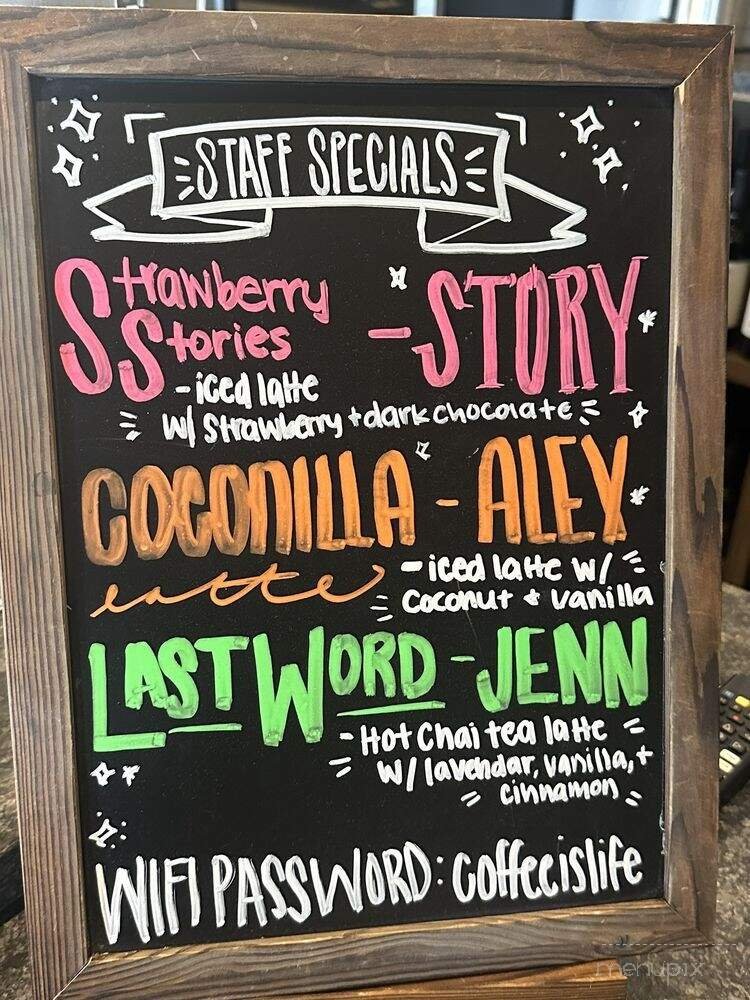 STAFF SPECIALS
Strawberry Stories - STORY
-iced latte
w/ Strawberry + dark chocolate
COCONILLA - ALEX
latte
-iced latte w/
coconut & vanilla
LAST WORD - JENN
-Hot Chai tea latte
w/ lavendar, vanilla, +
cinnamon
WIFI PASSWORD: coffeeislife
menupix